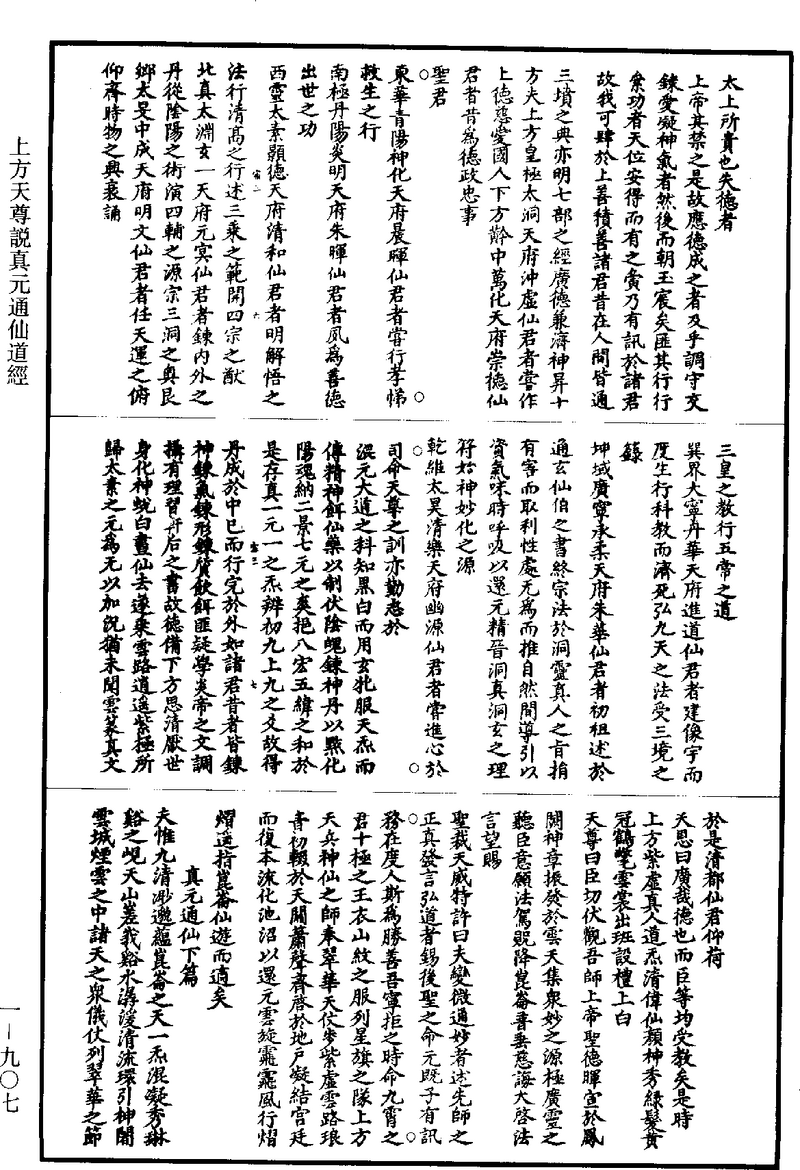 上方天尊説真元通仙道經
太上所貴也失德者
上帝其禁之是故應德成之者及乎調守交
鍊愛凝神氣者然後而朝玉宸矣匪其行行
衆功者天位安得而有之矣乃有訊於諸君
故我可肆於上善積善諸君昔在人間皆通
三墳之典亦明七部之經廣德兼濟神昇十
方夫上方皇極太洞天府沖虛仙君者嘗作
上德慈愛國人下方齡中萬化天府崇德仙
君者昔爲德政忠事
聖君
東華青陽神化天府晨暉仙君者嘗行孝悌
救生之行
南極丹陽炎明天府朱暉仙君者夙爲善德
出世之功
西靈太素顥德天府清和仙君者明解悟之
法行清高之行述三乘之範開四宗之猷
北真太淵玄一天府元冥仙君者鍊內外之
丹從陰陽之術演四輔之源宗三洞之奧艮
鄉太旻中成天府明文仙君者任天運之俯
仰齊時物之興衰誦
三皇之教行五常之道
巽界大寧丹華天府進道仙君者建像宇而
度生行科教而濟死弘九天之法受三境之
籙
坤域廣寧承柔天府朱華仙君者初祖述於
通玄仙伯之書終宗法於洞靈真人之旨捐
有害而取利性處无爲而推自然間導引以
資氣味時呼吸以還元精晉洞真洞玄之理
符始神妙化之源
乾維太昊清樂天府幽源仙君者嘗進心於
司命天尊之訓亦勤志於
混元大道之科知黑白而用玄牝服天炁而
傳精神餌仙藥以制伏陰魄鍊神丹以點化
陽魂納二景七元之爽挹八宏五緯之和於
是存真一元一之炁辨初九上九之爻故得
丹成於中已而行完於外如諸君昔者皆鍊
神鍊氣鍊形鍊質飲餌匪疑學炎帝之文調
攝有理習丹后之書故德備下方思清厭世
身化神蛻白晝仙去遂乘雲路逍遥紫極所
歸太素之元爲无以加況猶未聞雲篆真文
於是清都仙君仰荷
天恩曰廣哉德也而臣等均受教矣是時
上方紫虛真人道炁清偉仙顏神秀綠髮黃
冠鶴氅雲裳出班設禮上白
天尊曰臣切伏觀吾師上帝聖德暉宣於鳳
闕神章振發於雲天集衆妙之源極廣靈之
聽臣意願法駕貺降崑崙普垂慈誨大啓法
言望賜
聖裁天威特許曰夫變微通妙者述先師之
正真發言弘道者錫後聖之命元既子有訊
務在度人斯爲勝善吾寧拒之時命九霄之
君十極之王衣山紋之服列星旗之隊上方
天兵神仙之師奉翠華天仗步紫虛雲路琅
音初輟於天關蕭聲齊啓於地戶凝結宫廷
而復本流化池沼以還元雲旋靄靄風行熠
熠遥捋崑崙仙遊而適矣
真元通仙下篇
夫惟九清渺邈蘊崑崙之天一炁混凝秀琳
谿之峴天山峩峩谿水潺湲清流環引神闇
雲城煙雲之中諸天之衆儀仗列翠華之節
一—九〇七